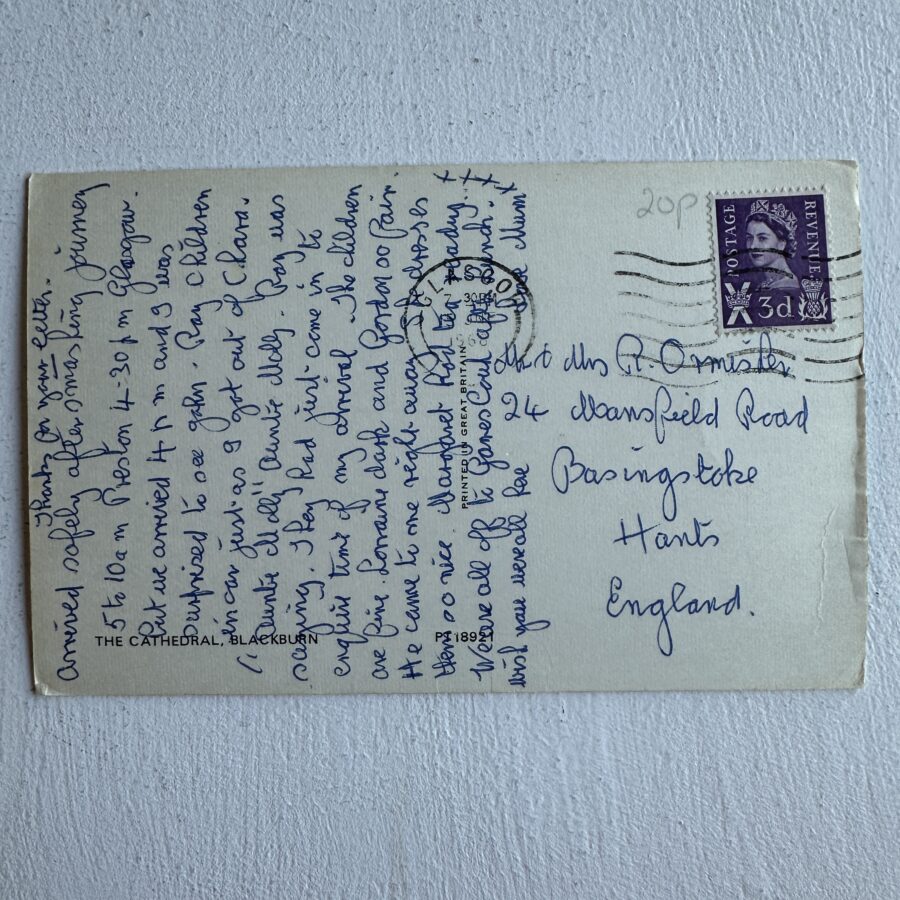 Thanks for your letter.
Arrived safely after smashing journey
5 to 10 am Preston 4-30 pm Glasgow.
But we arrived 4 pm and I was
surprised to see John. Ray Children
in car just as I got out of Chara.
(" Auntie Molly" Auntie Molly. Ray was
saying. They had just come in to
enquire time of my arrival. The children
are fine. Lorraine dark and Gordon so fair.
He came to me right away. Dresses
them so nice. Margaret Rod tea ready.
We are all off to after lunch.
wish you were all here love Mum
X X X X
THE CATHEDRAL, BLACKBURN
PT18921
PRINTED IN GREAT BRITAIN
20p
GLASGOW
7 30PM
POSTAGE
REVENUE
3d
Mr & Mrs R. Ormisher
24 Mansfield Road
Basingstoke
Hants
England.